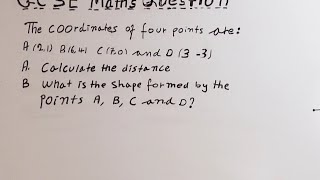 GCSE Maths Question
The coordinates of four points are:
A (2,1) B(6,4) C (7,0) and D (3 -3)
A. Calculate the distance
B What is the shape formed by the
points A, B, C and D?